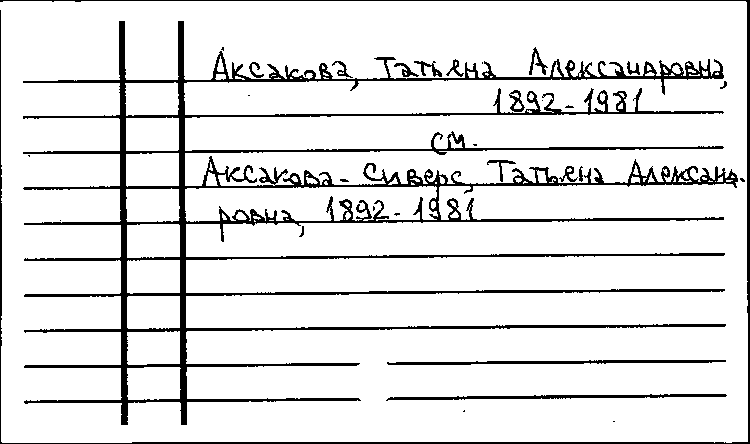 Аксакова, Татьяна Александровна,
1892-1981
см.
Аксакова-Сиверс, Татьяна Александ-
ровна, 1892-1981